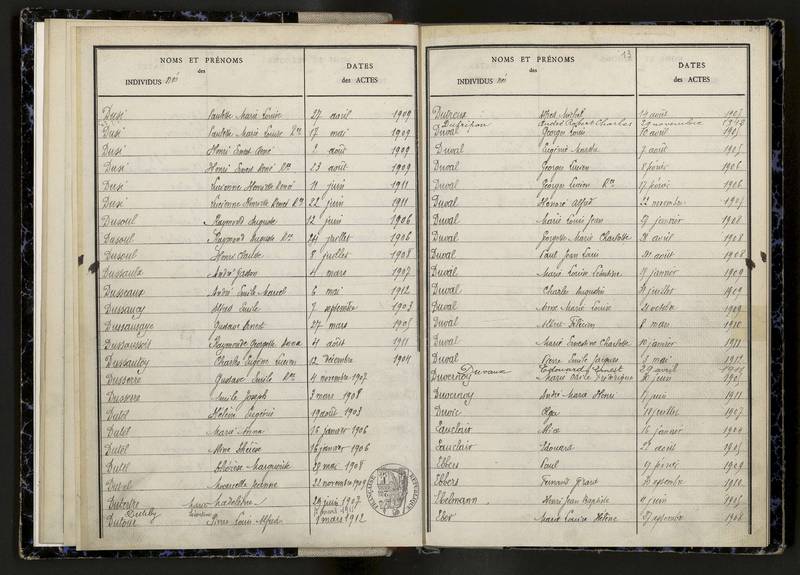 NOMS ET PRÉNOMS
des
INDIVIDUS nés
DATES
des ACTES
Dusé Paulette Marie Louise 27 avril 1909
Dusé Paulette Marie Louise Rce 17 mai 1909
Dusé Henri Ernest René août 1909
Dusé Henri Ernest René Rce 23 août 1909
Dusé Lucienne Henriette Renée 11 juin 1911
Dusé Lucienne Henriette Renée Rce 22 juin 1911
Dusoul Raymond Auguste 12 juin 1906
Dusoul Raymond Auguste Rce 24 juillet 1906
Dusoul Henri Claude 8 juillet 1908
Dussaulx André 4 mars 1907
Dusseaux André Emile Marcel 6 mai 1912
Dussaucy Alfred Emile 7 septembre 1903
Dussausaye Gustave Ernest 27 mars 1905
Raymonde Georgette Anna 4 août 1911
Dussautoy Charles Eugène Lucien 12 décembre 1904
Dusserre Gustave Emile Rce 4 novembre 1907
Dusserre Emile Joseph 3 mars 1908
Dutel Hélène Eugénie 19 août 1903
Dutel Marie Anna 16 janvier 1906
Dutel Aline Thérèse 16 janvier 1906
Dutel Thérèse Marguerite 27 mai 1908
Dutel Marcelle Jeanne 22 novembre 1909
Dutertre Marie Madeleine 29 juin 1907
Dutilly
Dutour Pierre Louis Alfred 1 mars 1912
RÉPUBLIQUE FRANÇAISE
13
NOMS ET PRÉNOMS
des
INDIVIDUS nés
DATES
des ACTES
Dutreux Alfred 14 août 1903
Dufrépon André Robert Charles 29 novembre
Duval Georges Louis 10 avril 1905
Duval Eugénie 7 août 1905
Duval Georges Lucien 8 février 1906
Duval Georges Lucien Rce 17 février 1906
Duval Honoré Alfred 22 novembre 1907
Duval Marie Louis Jean 29 janvier 1908
Duval Georgette Marie Charlotte 28 avril 1908
Duval Paul Jean Louis 21 août 1908
Duval Marie Louise 19 janvier 1909
Duval Charles Augustin juillet 1909
Duval Anne Marie Louise 21 octobre 1909
Duval Albert 8 mars 1910
Duval Marie Ernestine Charlotte 10 janvier 1911
Duval Pierre Emile Jacques 3 mai 1912
Duvaux Edouard Ernest 29 avril 1911
Duvernoy Marie juin
Duvernoy André Marie Henri juin 1911
Duvoie Olga juillet 1907
Eauclair Alice 16 janvier 1904
Eauclair Edouard 22 avril 1905
Ebbers Paul 19 février 1909
Ebbers Fernand Gérard septembre 1910
Ebelmann Henri Jean Baptiste juin 1905
Eber Marie Louise Hélène septembre 1908